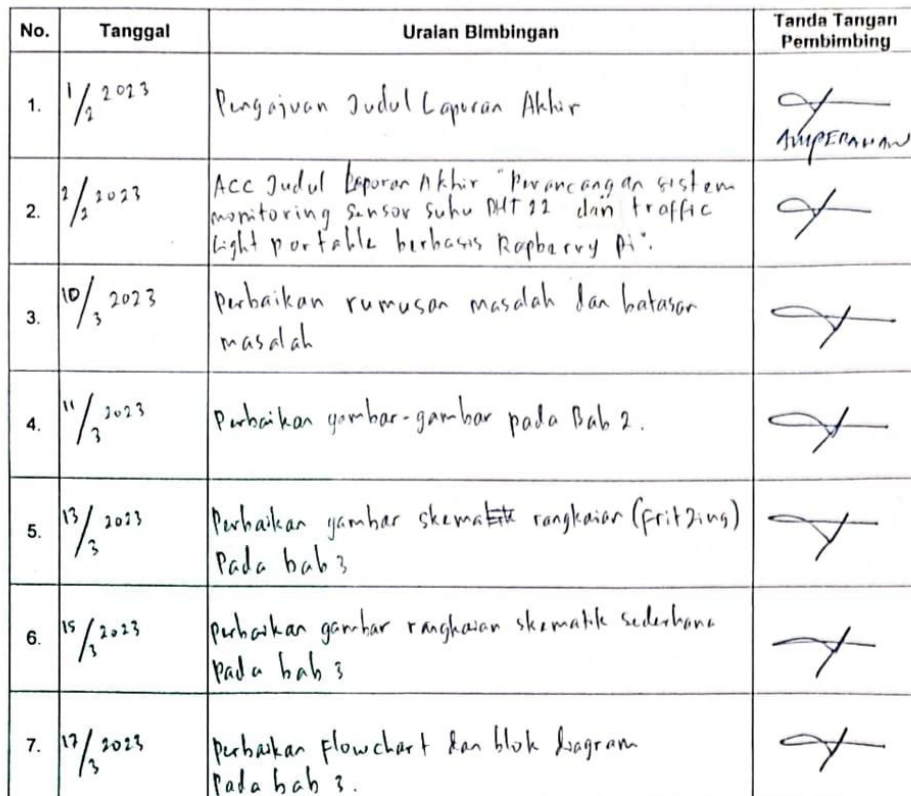 No. Tanggal Uraian Bimbingan Tanda Tangan
Pembimbing
1. 1/2 2023 Pengajuan Judul Laporan Akhir
AMPERAWAN
2. 2/2 2023 ACC Judul Laporan Akhir "Perancangan sistem
monitoring sensor suhu DHT 22 dan traffic
light portable berbasis Rapberry Pi".
3. 10/3 2023 Perbaikan rumusan masalah dan batasan
masalah
4. 11/3 2023 Perbaikan gambar-gambar pada Bab 2.
5. 13/3 2023 Perbaikan gambar skematik rangkaian (fritzing)
Pada bab 3
6. 15/3 2023 Perbaikan gambar rangkaian skematik sederhana
Pada bab 3
7. 17/3 2023 Perbaikan flowchart dan blok diagram
Pada bab 3.